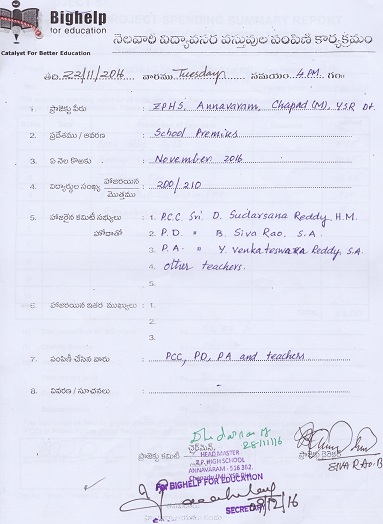 Bighelp
for education
Catalyst For Better Education
నెలవారీ విద్యావసర వస్తువుల పంపిణీ కార్యక్రమం
తేది. 22/11/2016 వారము Tuesday సమయం. 4 PM. గం
1. ప్రాజెక్టు పేరు : ZPHS, Annavaram, Chapad (M), YSR Dt.
2. ప్రదేశము / ఆవరణ : School Premises
3. ఏ నెల కొరకు : November 2016
4. విద్యార్థుల సంఖ్య హాజరయిన / మొత్తము : 200/210
5. హాజరైన కమిటీ సభ్యులు : 1. P.C.C. Sri D. Sudarsana Reddy, H.M.
హోదాతో 2. P.D. " B. Siva Rao, S.A.
3. P.A. " Y. Venkateswara Reddy, S.A.
4. other teachers.
6. హాజరయిన ఇతర ముఖ్యులు : 1.
2.
3.
7. పంపిణీ చేసిన వారు : PCC, PD, PA and teachers
8. వివరణ / సూచనలు : -
28/11/16
ప్రాజెక్టు కమిటీ ఛైర్మెన్,
HEAD MASTER
Z.P. HIGH SCHOOL
ANNAVARAM - 516 362.
SIVA RAO. B
For BIGHELP FOR EDUCATION
SECRETARY
08/12/16